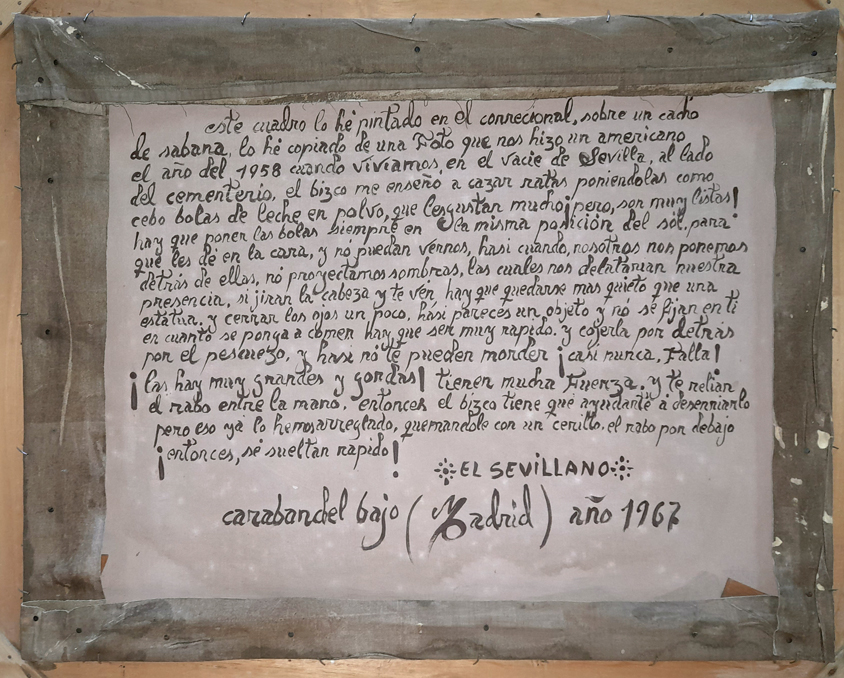 este cuadro lo hé pintado en el correcional, sobre un cacho
de sabana, lo hé copiado de una Foto que nos hizo un americano
el año del 1958 cuando viviamos, en el vacie de Sevilla, al lado
del cementerio, el bizco me enseño a cazar ratas poniendolas como
cebo bolas de leche en polvo, que lesgustan mucho ¡pero, son muy listas!
hay que poner las bolas siempre en la misma posición del sól, para
que les dé en la cara, y nó puedan vernos, hasi cuando, nosotros nos ponemos
detrás de ellas, nó proyectamos sombras, las cuales nos delatarian nuestra
presencia, si jiran la cabeza y te vén, hay que quedarse mas quieto que una
estatua, y cerrar los ojos un poco, hási pareces un objeto y nó se fijan en ti
en cuanto se ponga a comer hay que ser muy rapido, y cojerla por detrás
por el pescuezo, y hasi nó te pueden morder ¡casi nunca, Falla!
¡las hay muy grandes y gordas! tienen mucha Fuerza, y te relian
el rabo entre la mano, entonces el bizco tiene que ayudarte á desenrriarlo
pero eso yá lo hemosarreglado, quemandole con un cerillo, el rabo por debajo
¡entonces, sé sueltan rapido!
EL SEVILLANO
carabandel bajo (Madrid) año 1967